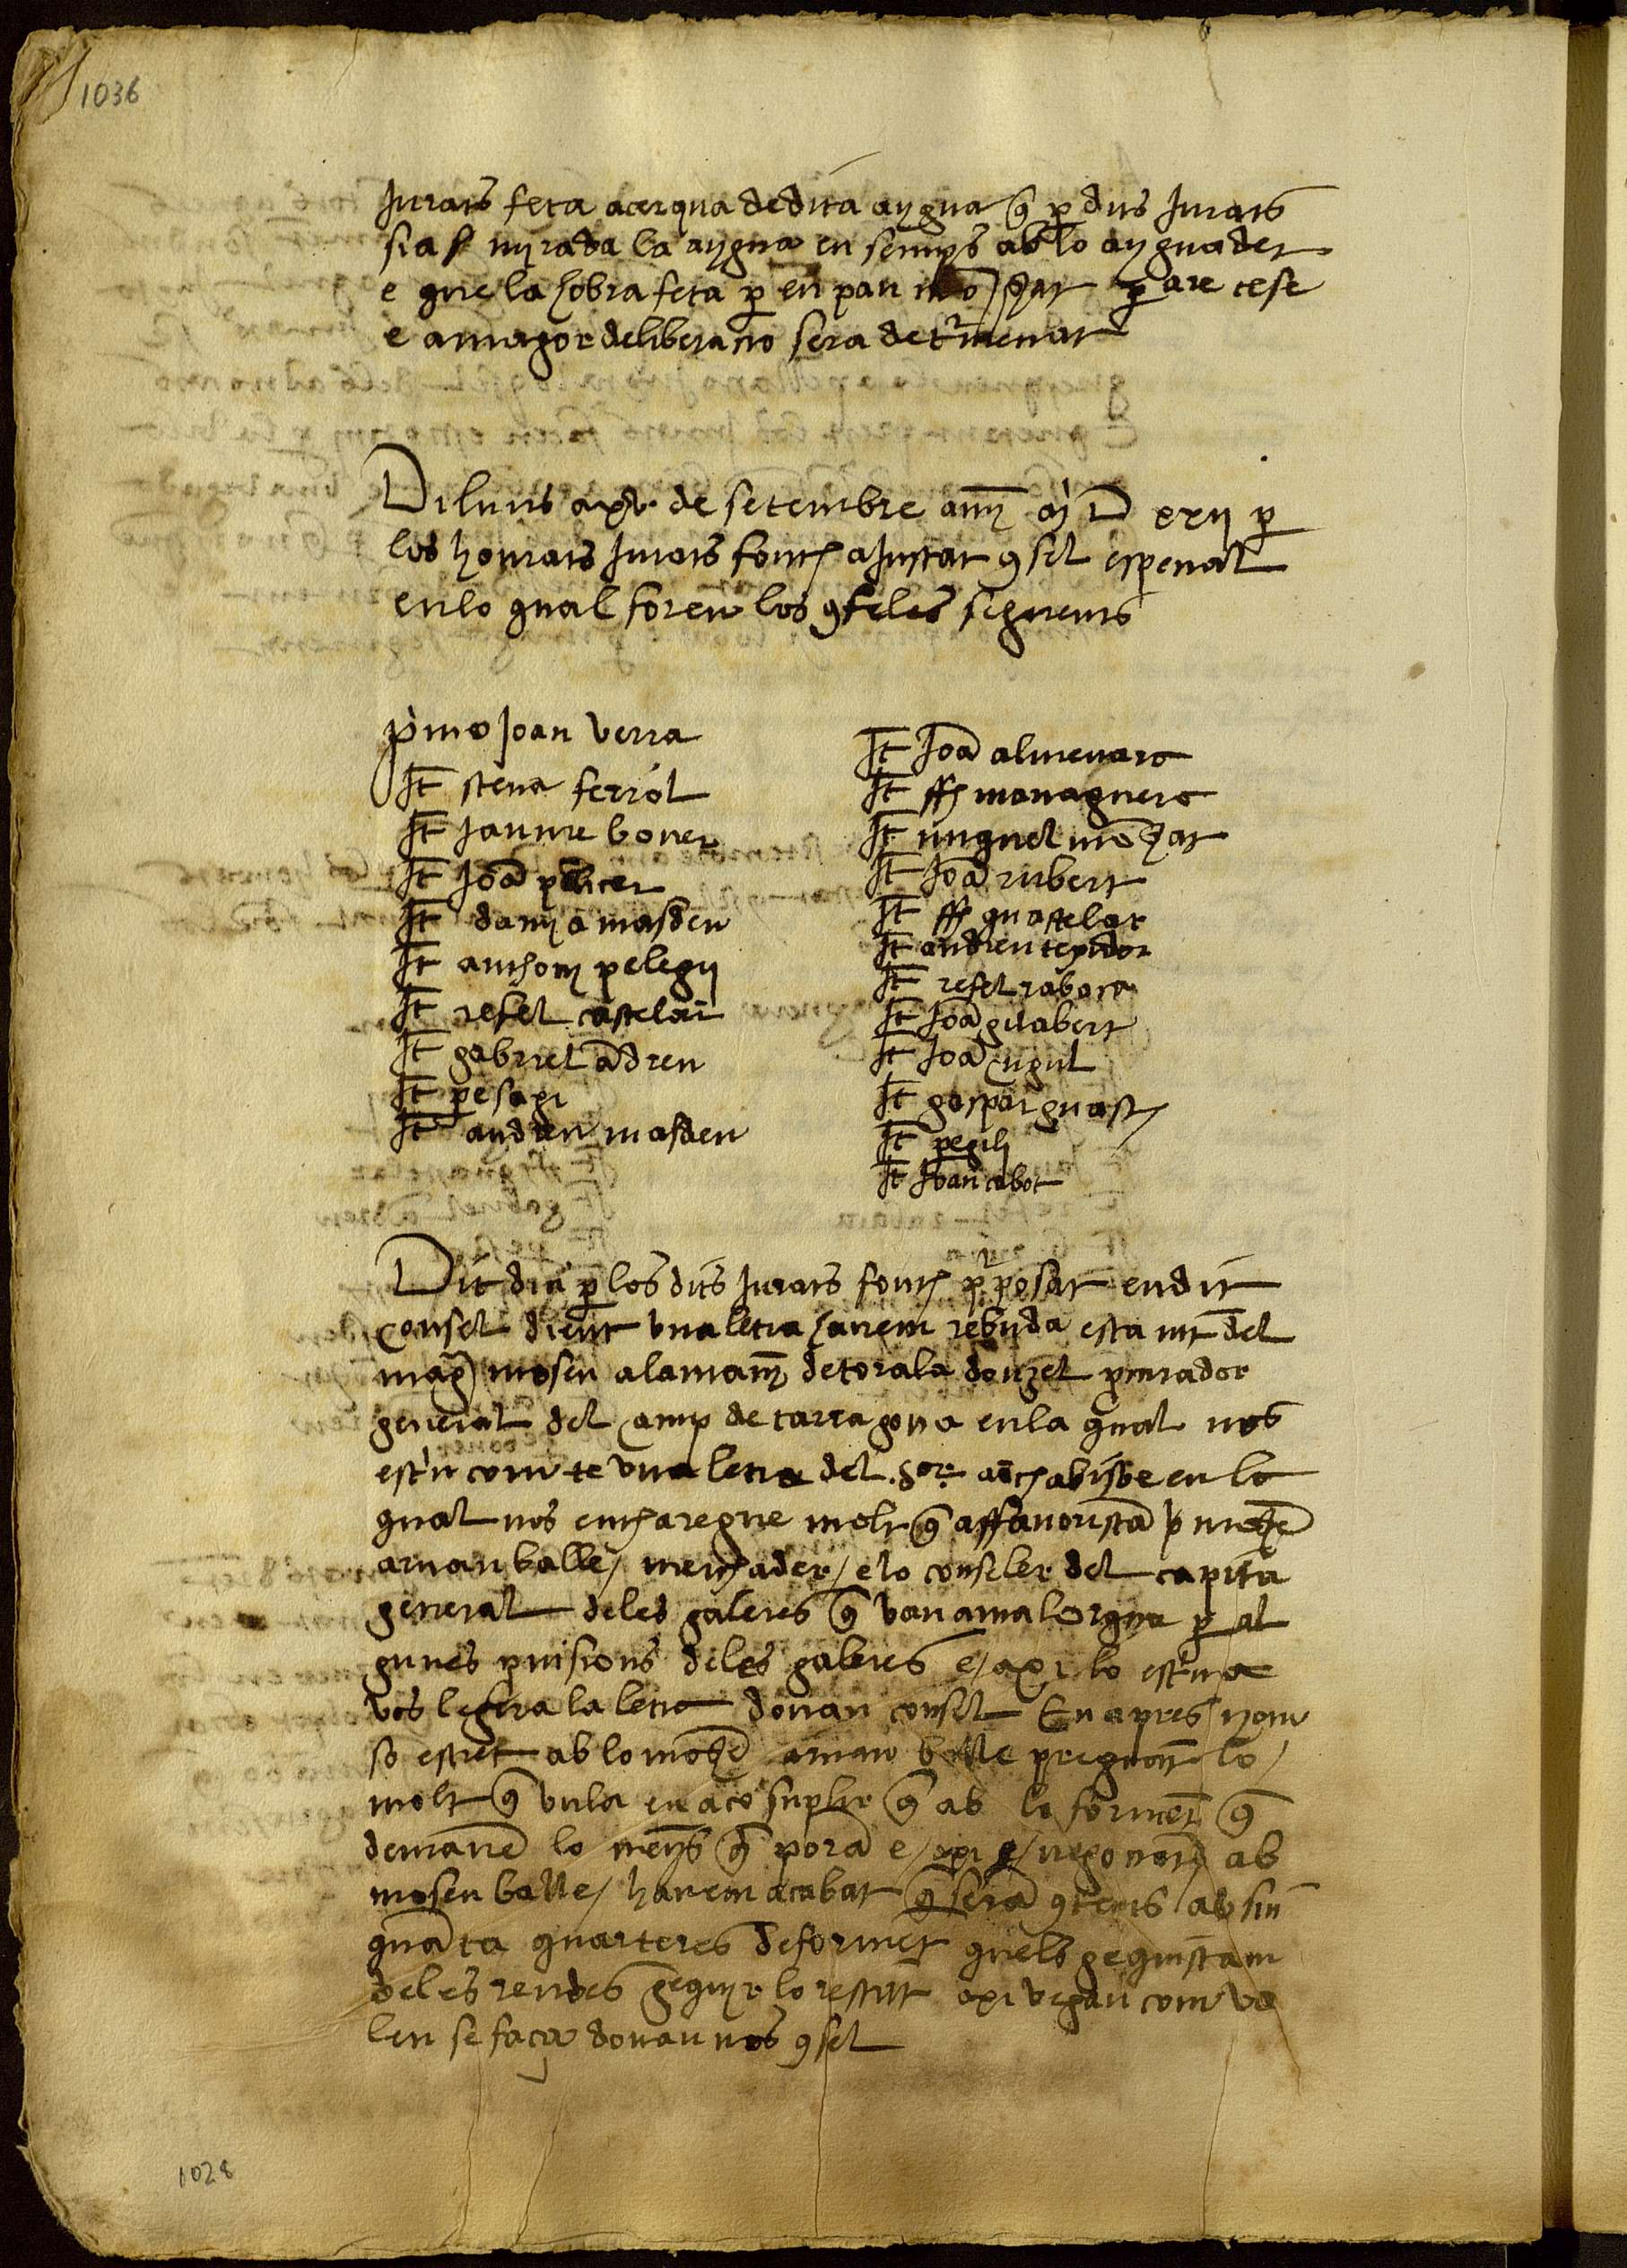 1036
Jurats feta acerqua de dita aygua q̃ p̱ dits Jurats
sia myrada la aygua en semps ab lo ayguader
e que la hobra feta p̱ en pau p̱ are cese
e a magor deliberacio sera det̃menat
Diluns a xv de setembre any M D p̱
los honrats Jurats fonch aJustat 9sel espenal
en lo qual foren los 9selés seguents
p̃imo Joan verra
It̃ steva ferrol
It̃ Jaume bover
It̃ Joã pelicer
It̃ damya masdeu
It̃ anthoni pelegy
It̃ refel castelar
It̃ gabriel ãdreu
It̃ pe sagi
It̃ andreu masdeu
It̃ Joã almenara
It̃ ffṣ monaguere
It̃ miquel mõ
It̃ Joã rubert
It̃ ffṣ guastelar
It̃ andreu texidor
It̃ refel rabaca
It̃ Joã gilabert
It̃ Joã
It̃ gaspar guasch
It̃ pe gili
It̃ Joan cabot
Dit dia p̱ los dits Jurats fonch p̱posat en dit
consel dient una letra havem rebuda esta nit del
mag̃ mosen alamany de torala donzel p̱curador
general del camp de tarragona en la qual nos
estriu com te una letra del Sor archabisbe en lo
qual nos encharegue molt q̃ affavoriscã
arnau balle / merchader / e lo conseler del capita
general de les galeres q̃ van a malorqua p̱ al
gunes p̱visions de les galeres e / axi lo estriva
vos legira la letra donau consel En apres / yom
so estret ab lo arnau balle preguant lo /
molt q̃ vula en aco suplir q̃ ab lo formẽt q̃
demane lo menys q̃ pora e / axi / negociant ab
mosen balle / havem acabat q̃ serã 9tents ab sin
quãta quarteres de formẽt quels
de les rendes lo restant axi vegau com vo
leu se faça donau nos 9sel
1028